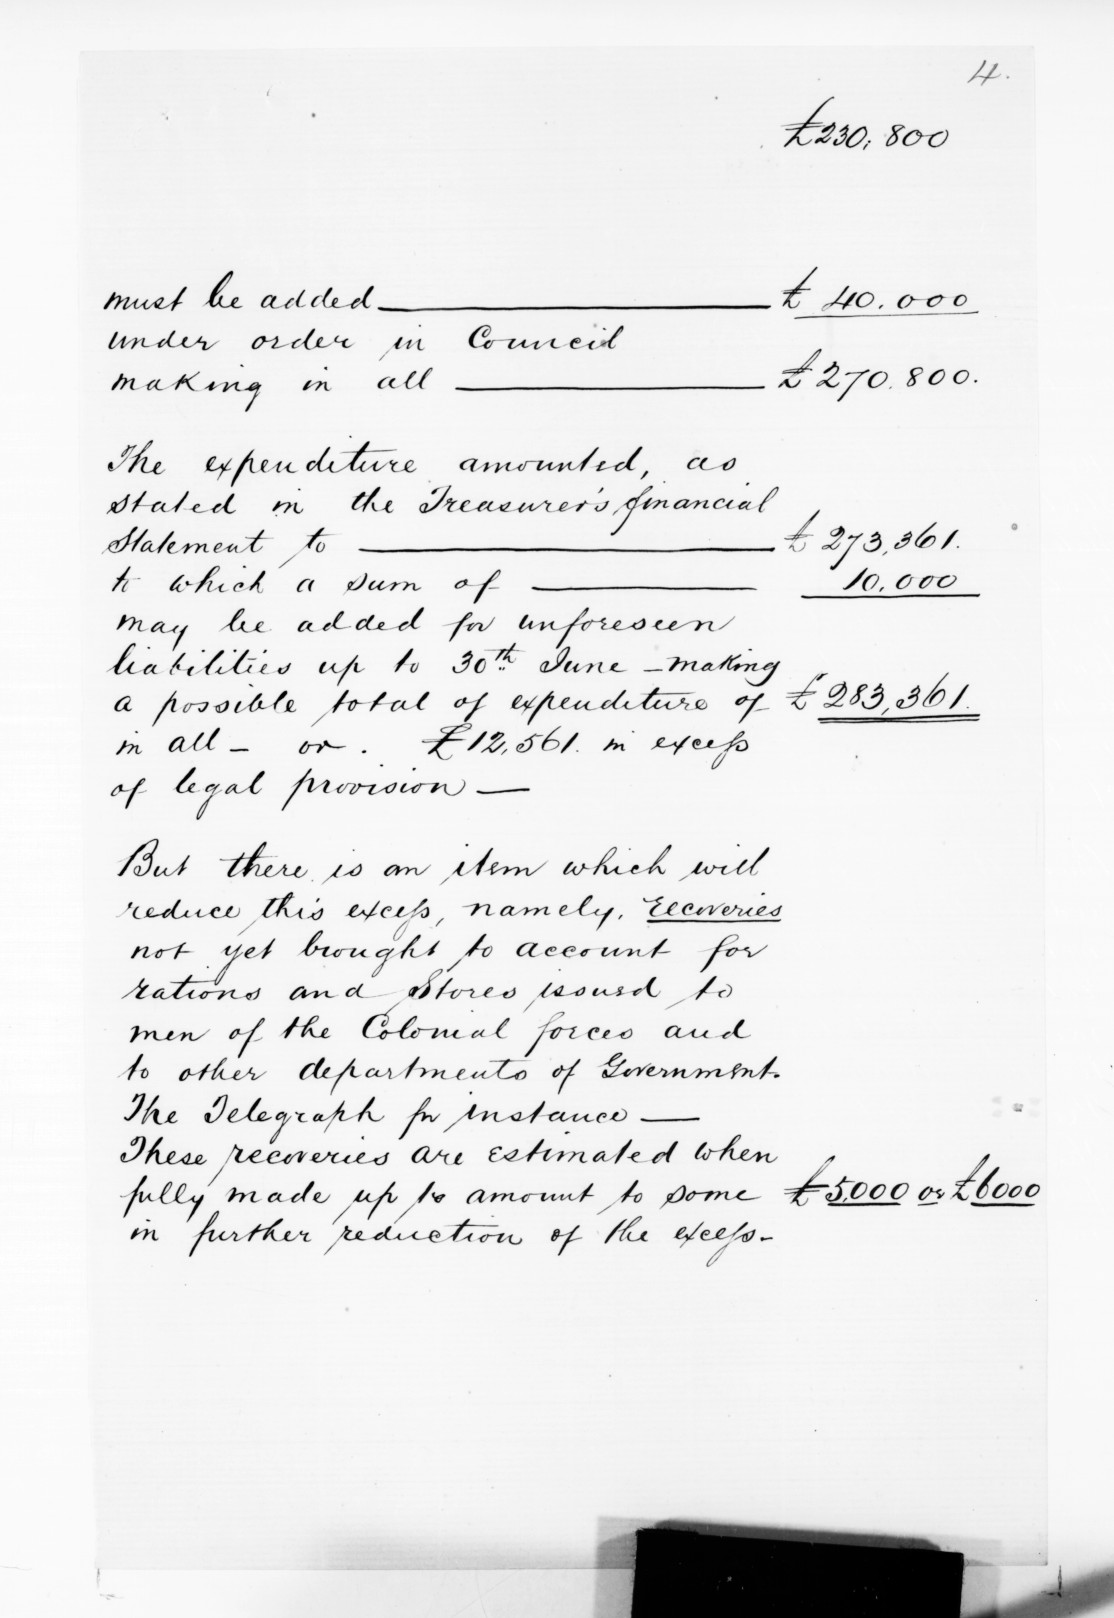 4.
£230,800
must be added — £ 40.000
under order in Council
making in all — £270.800.
The expenditure amounted, as
stated in the Treasurer's financial
Statement to — £ 273,361.
to which a sum of — 10,000
may be added for unforeseen
liabilities up to 30th June - making
a possible total of expenditure of £283,361.
in all - or. £12,561. in excess
of legal provision —
But there is an item which will
reduce this excess, namely, Recoveries
not yet brought to account for
rations and Stores issued to
men of the Colonial forces and
to other departments of Government.
The Telegraph for instance —
These recoveries are estimated when
fully made up to amount to some £5,000 or £6000
in further reduction of the excess-